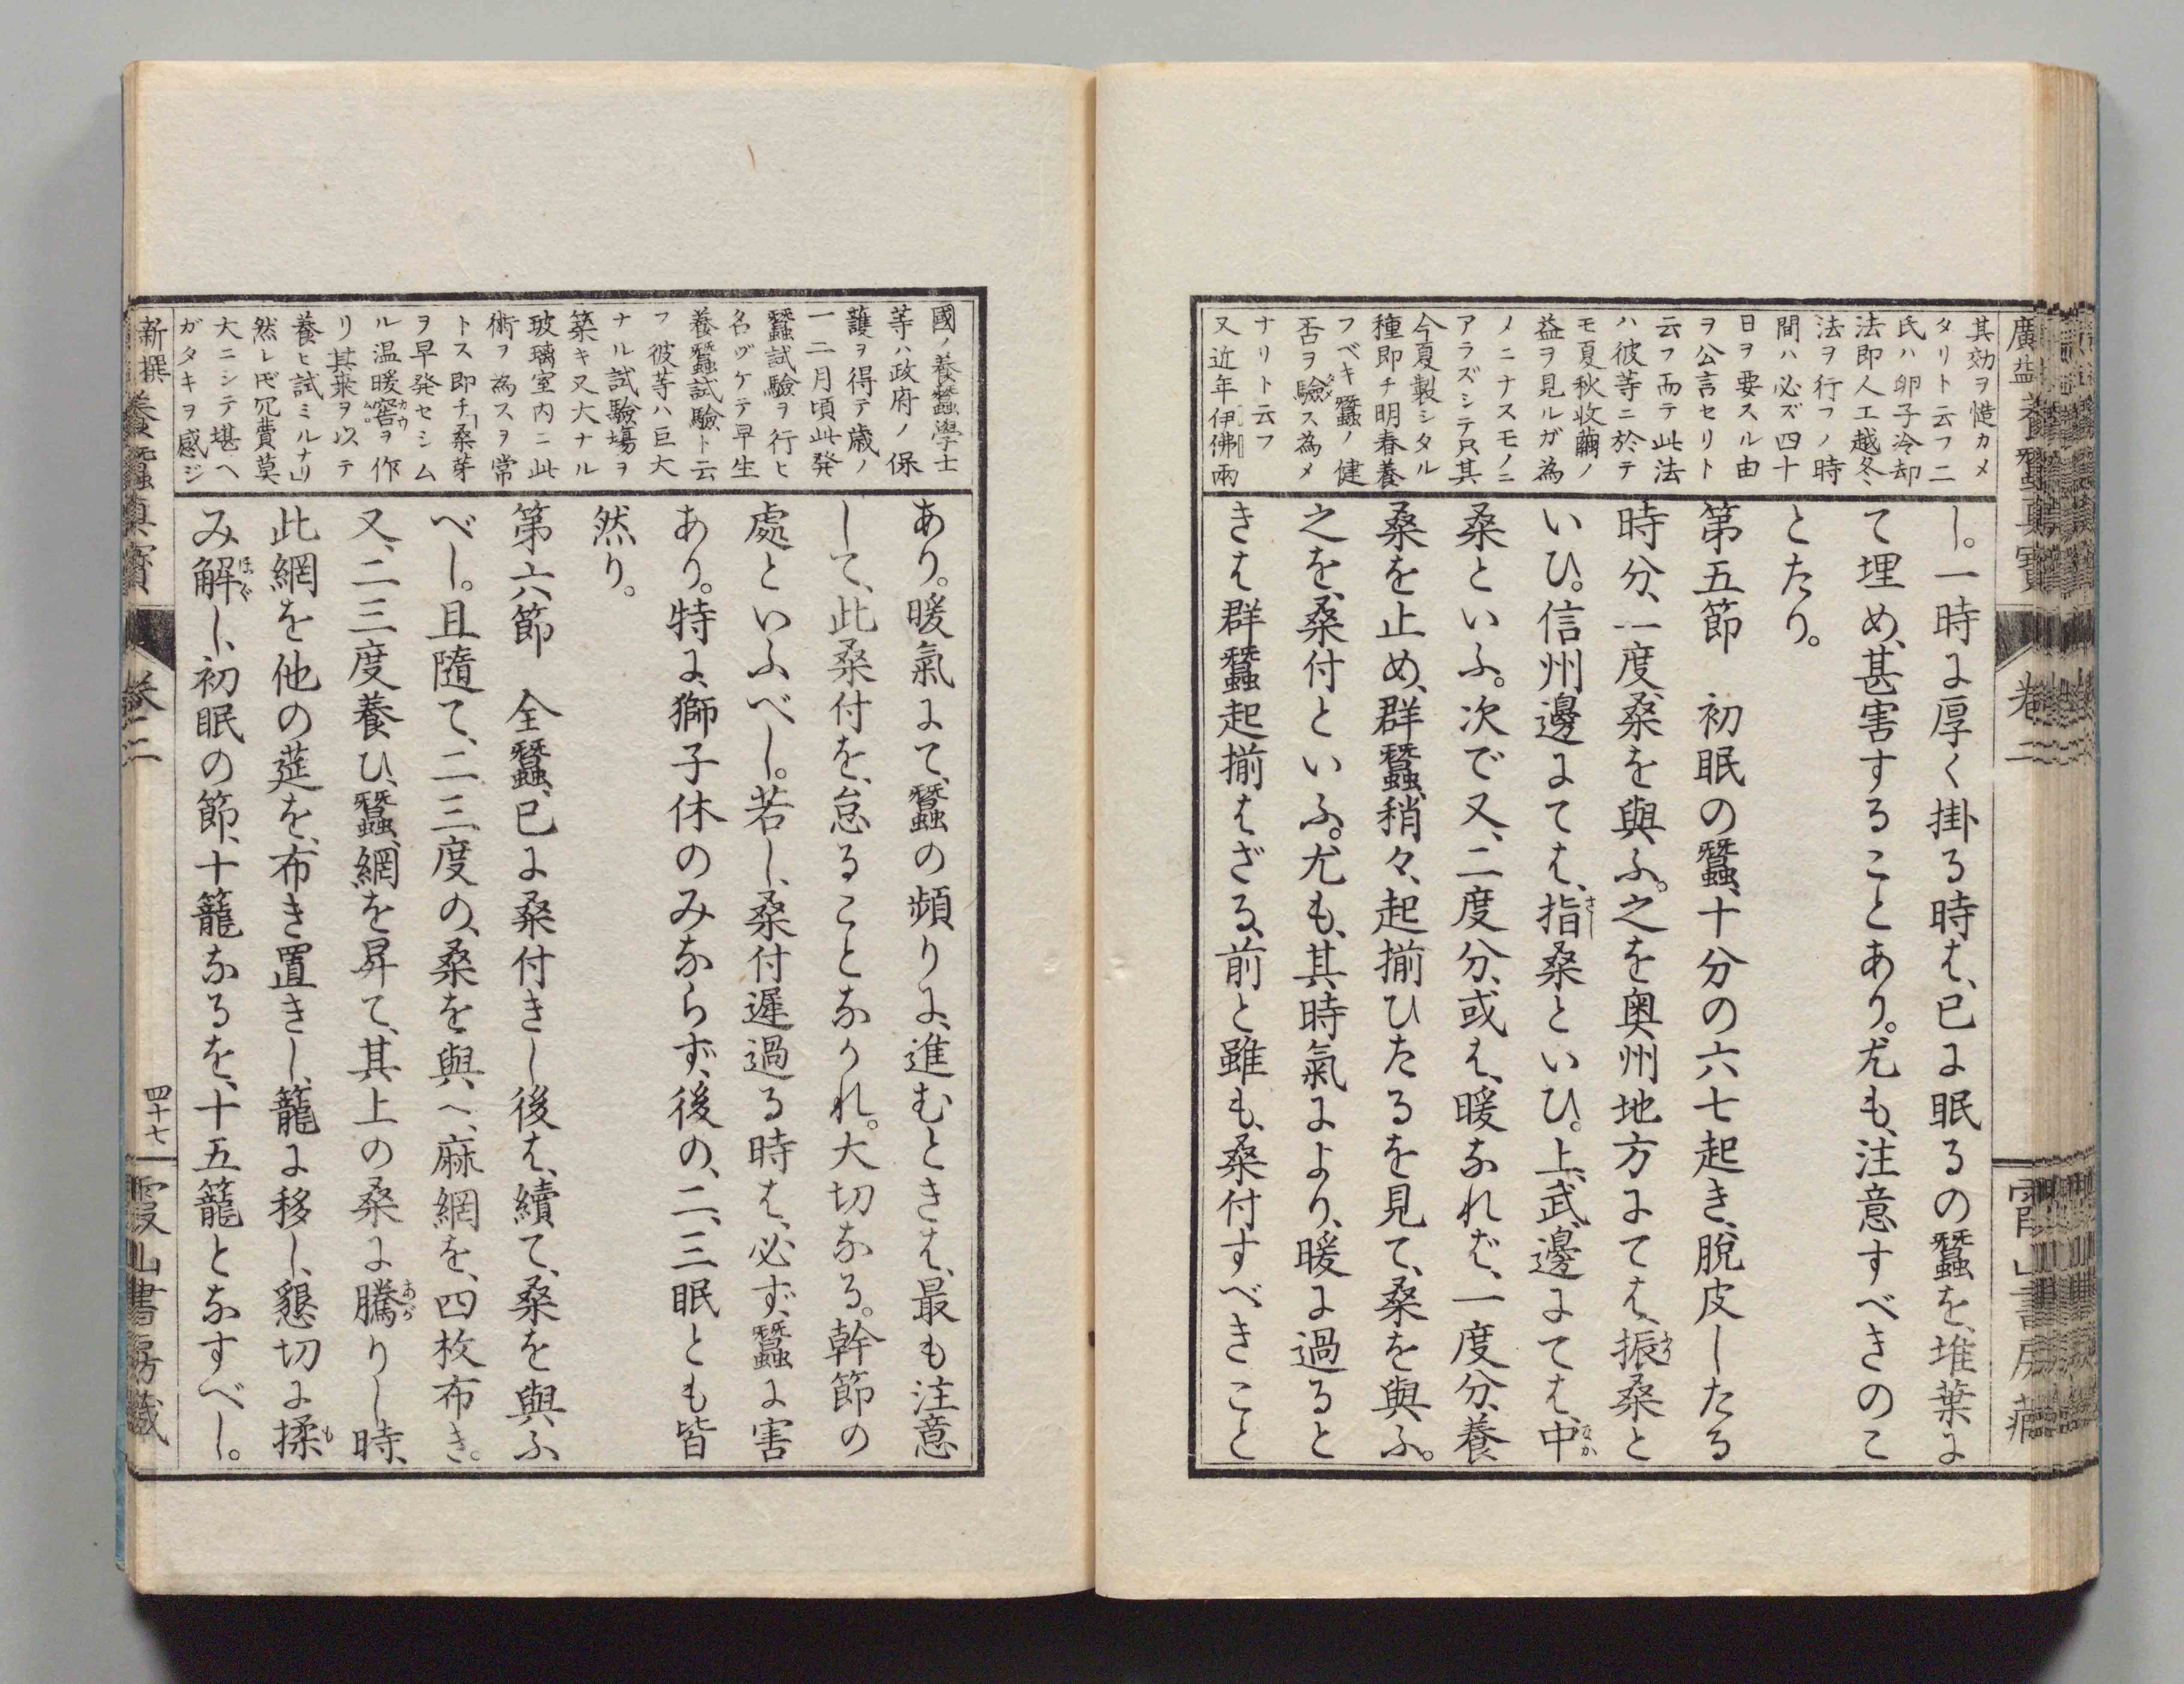 廣益養蠶眞寶
卷二
其効ヲ慥カメ
タリト云フ二
氏ハ卵子冷却
法即人工越冬
法ヲ行フノ時
間ハ必ズ四十
日ヲ要スル由
ヲ公言セリト
云フ而テ此法
ハ彼等ニ於テ
モ夏秋收繭ノ
益ヲ見ルガ為
メニナスモノニ
アラズシテ只其
今夏製シタル
種即チ明春養
フベキ蠶ノ健
否ヲ驗ス為メ
ナリト云フ
又近年伊佛兩
し。一時に厚く掛る時は、已に眠るの蠶を、堆葉に
て埋め、甚害することあり。尤も、注意すべきのこ
とたり。
第五節　初眠の蠶、十分の六七起き、脱皮したる
時分、一度、桑を與ふ。之を奥州地方にては、振桑と
いひ。信州邊にては、指桑といひ。上武邊にては、中
桑といふ。次で又、二度分、或は、暖なれば、一度分、養
桑を止め、群蠶、稍々、起揃ひたるを見て、桑を與ふ。
之を、桑付といふ。尤も、其時氣により、暖に過ると
きは群蠶起揃はざる、前と雖も、桑付すべきこと
國ノ養蠶學士
等ハ政府ノ保
護ヲ得テ歳ノ
一二月頃此発
蠶試驗ヲ行ヒ
名ヅケテ早生
養蠶試驗ト云
フ彼等ハ巨大
ナル試驗塲ヲ
築キ又大ナル
玻璃室内ニ此
術ヲ為スヲ常
トス即チ「桑芽
ヲ早発セシム
ル温暖窖ヲ作
リ其葉ヲ以テ
養ヒ試ミルナリ」
然レ𪜈冗費莫
大ニシテ堪ヘ
ガタキヲ感ジ
あり。暖氣にて、蠶の頻りに、進むときは、最も注意
して、此桑付を、怠ることなかれ。大切なる。幹節の
處といふべし。若し、桑付遲過る時は、必ず、蠶に害
あり。特に、獅子休のみならず、後の、二、三眠とも皆
然り。
第六節　全蠶、已に桑付きし後は、續て、桑を與ふ
べし。且隨て、二三度の、桑を與へ、麻網を、四枚布き。
又、二三度養ひ、蠶、網を昇て、其上の桑に騰りし時、
此網を他の莚を、布き置きし、籠に移し、懇切に揉
み解し、初眠の節、十籠なるを、十五籠となすべし。
新撰養蠶眞寶
卷二
四十七
霞山書房藏